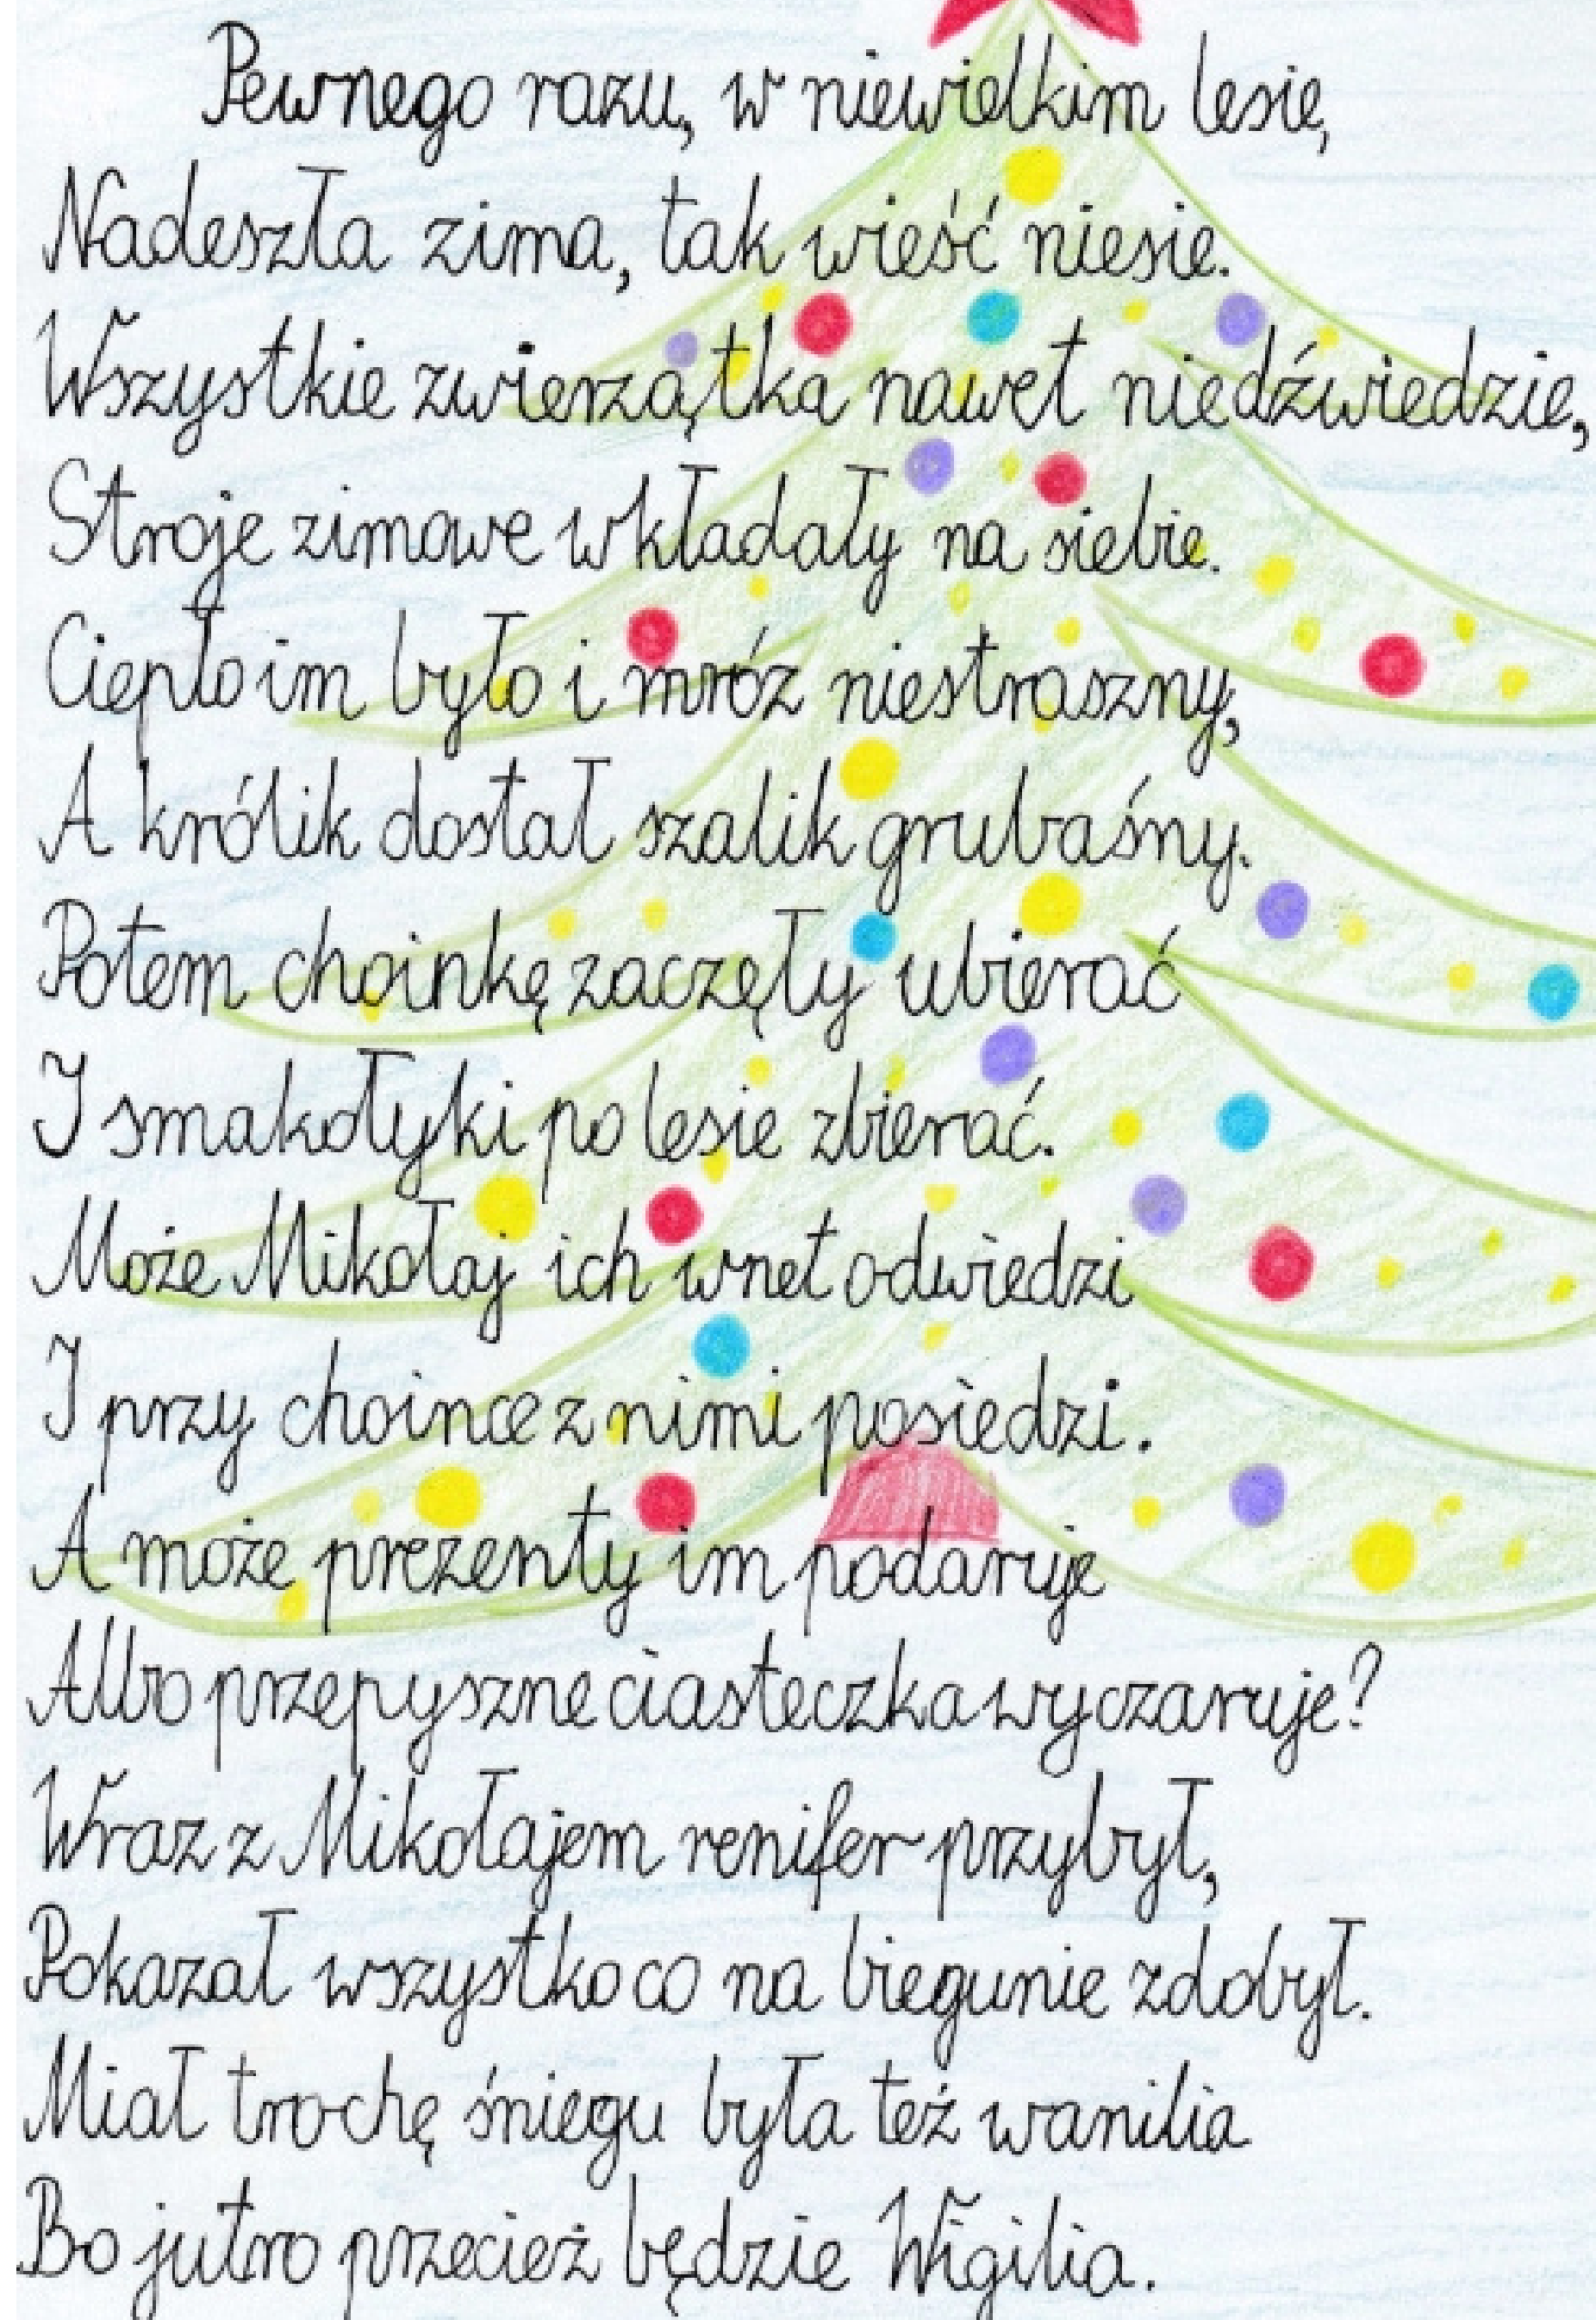 Pewnego razu, w niewielkim lesie,
Nadeszła zima, tak wieść niesie.
Wszystkie zwierzątka nawet niedźwiedzie,
Stroje zimowe wkładały na siebie.
Ciepło im było i mróz niestraszny,
A królik dostał szalik grubaśny.
Potem choinkę zaczęły ubierać
I smakołyki po lesie zbierać.
Może Mikołaj ich wnet odwiedzi
I przy choince z nimi posiedzi.
A może prezenty im podaruje
Albo przepyszne ciasteczka wyczaruje?
Wraz z Mikołajem renifer przybył,
Pokazał wszystko co na biegunie zdobył.
Miał trochę śniegu była też wanilia
Bo jutro przecież będzie Wigilia.